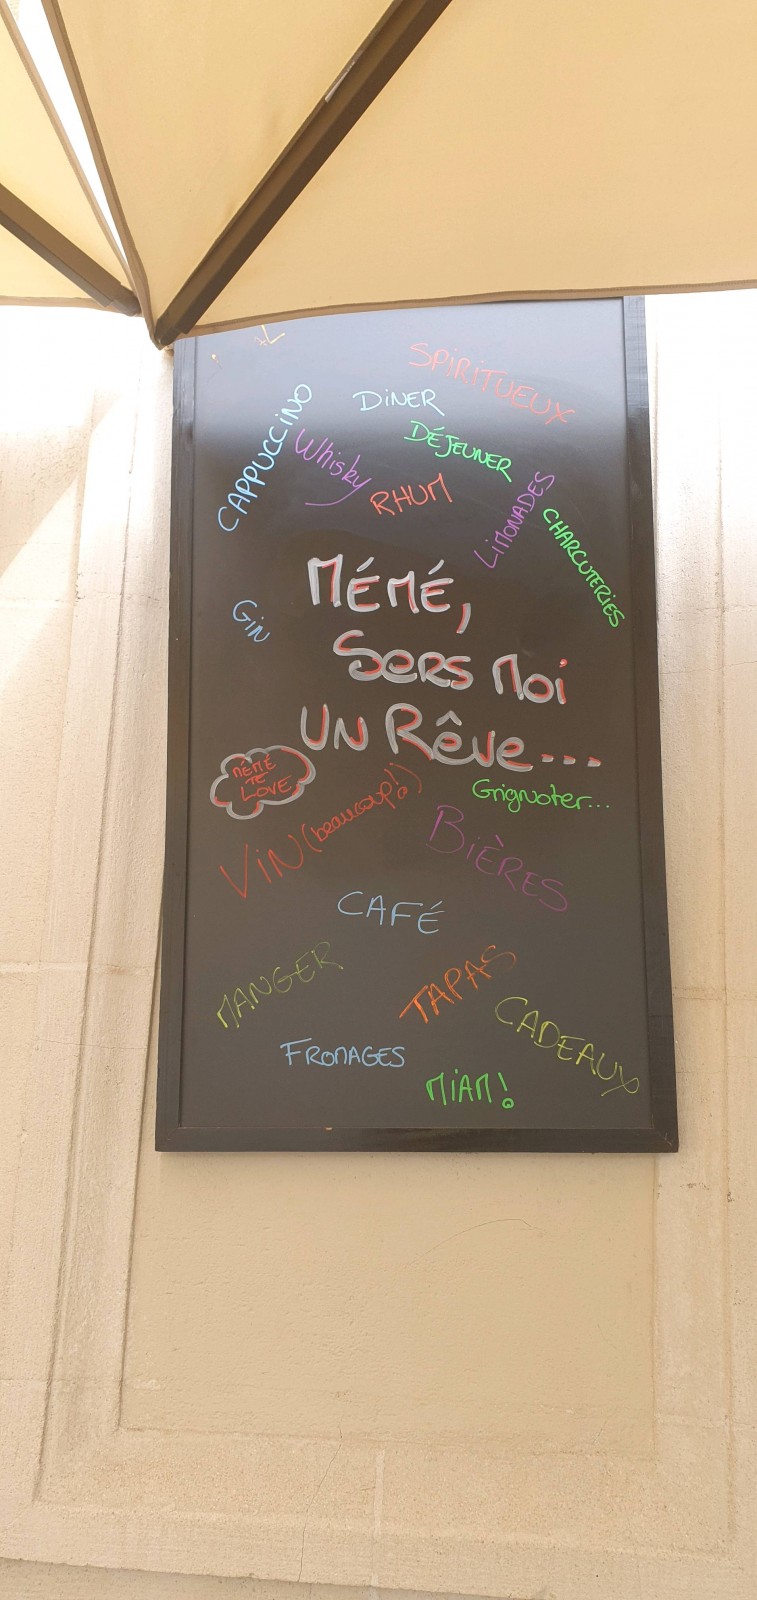 SPIRITUEUX
DINER
CAPPUCCINO
DÉJEUNER
Whisky
RHUM
LIMONADES
CHARCUTERIES
GIN
MÉMÉ,
SERS MOI
UN RÊVE...
MÉMÉ
TE
LOVE
Grignoter...
VIN (beaucoup!)
BIÈRES
CAFÉ
MANGER
TAPAS
CADEAUX
FROMAGES
MIAM!